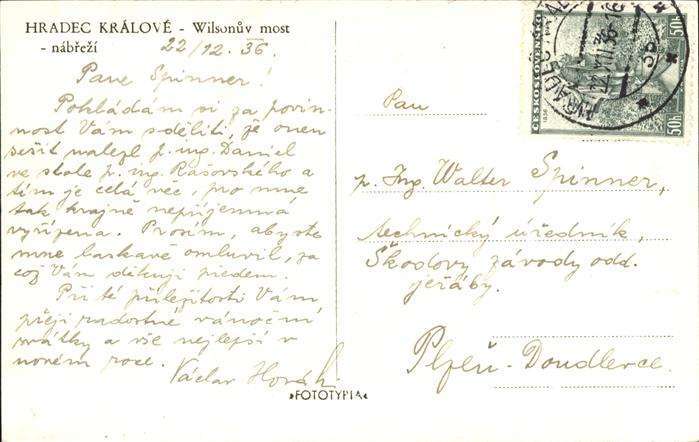 HRADEC KRÁLOVÉ - Wilsonův most
- nábřeží
22/12. 36.
Pane Spinner!
Pokládám si za povin-
nost Vám sděliti, že onen
sešit nalezl p. ing. Daniel
ve stole p. ing. Rašovského a
tím je celá věc, pro mne
tak krajně nepříjemná
vyřízena. Prosím, abyste
mne laskavě omluvil, za
což Vám děkuji předem.
Při té příležitosti Vám
přeji radostné vánoční
svátky a vše nejlepší v
novém roce.
Václav Horák
»FOTOTYPIA«
ČESKOSLOVENSKO
50h
50h
HRADEC KRÁL
22.XII.36-16
3b
Pan
p. Ing. Walter Spinner,
technický úředník,
Škodovy závody odd.
jeřáby.
Plzeň-Doudlevce.